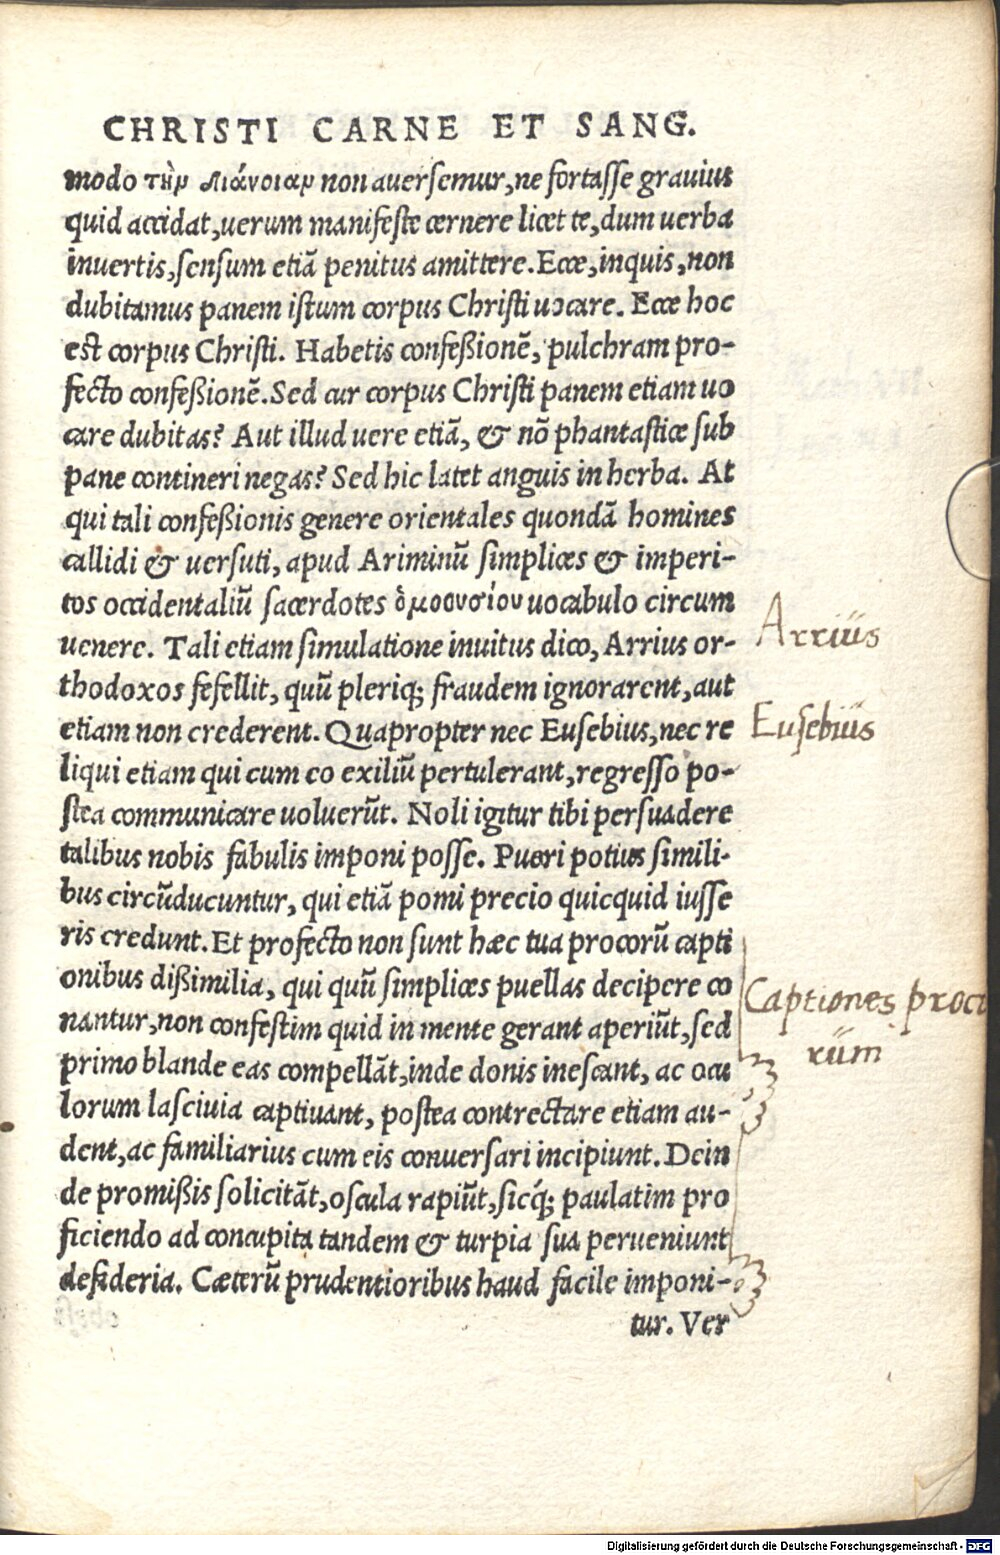 CHRISTI CARNE ET SANG.
modo τὴν διάνοιαν non auersemur, ne fortasse grauius
quid accidat, uerum manifeste cernere licet te, dum uerba
inuertis, sensum etiã penitus amittere. Ecce, inquis, non
dubitamus panem istum corpus Christi uocare. Ecce hoc
est corpus Christi. Habetis confeßionẽ, pulchram pro-
fecto confeßionẽ. Sed cur corpus Christi panem etiam uo
care dubitas? Aut illud uere etiã, & nõ phantastice sub
pane contineri negas? Sed hic latet anguis in herba. At
qui tali confeßionis genere orientales quondã homines
callidi & uersuti, apud Ariminũ simplices & imperi-
tos occidentaliũ sacerdotes ὁμοουσίου uocabulo circum
uenere. Tali etiam simulatione inuitus dico, Arrius or-
thodoxos fefellit, quũ pleriq; fraudem ignorarent, aut
etiam non crederent. Quapropter nec Eusebius, nec re
liqui etiam qui cum eo exiliũ pertulerant, regresso po-
stea communicare uoluerũt. Noli igitur tibi persuadere
talibus nobis fabulis imponi posse. Pueri potius simili-
bus circũducuntur, qui etiã pomi precio quicquid iusse
ris credunt. Et profecto non sunt hæc tua procorũ capti
onibus dißimilia, qui quũ simplices puellas decipere co
nantur, non confestim quid in mente gerant aperiũt, sed
primo blande eas compellãt, inde donis inescant, ac ocu
lorum lasciuia captiuant, postea contrectare etiam au-
dent, ac familiarius cum eis conuersari incipiunt. Dein
de promißis solicitãt, oscula rapiũt, sicq́; paulatim pro
ficiendo ad concupita tandem & turpia sua perueniunt
desideria. Cæterũ prudentioribus haud facile imponi-
tur. Ver
Arrius
Eusebius
Captiones proco
rum
Digitalisierung gefördert durch die Deutsche Forschungsgemeinschaft - DFG